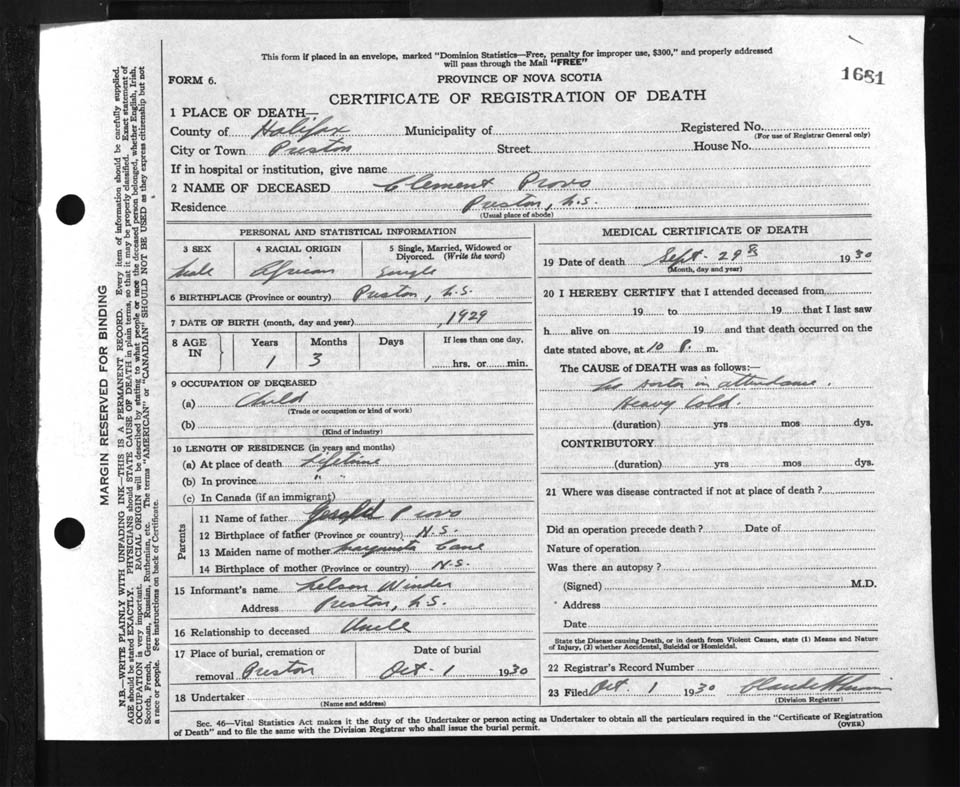 This form if placed in an envelope, marked "Dominion Statistics—Free, penalty for improper use, $300," and properly addressed
will pass through the Mail "FREE"
1681
FORM 6.
PROVINCE OF NOVA SCOTIA
CERTIFICATE OF REGISTRATION OF DEATH
1 PLACE OF DEATH—
County of Halifax Municipality of Registered No.
(For use of Registrar General only)
City or Town Preston Street House No.
If in hospital or institution, give name
2 NAME OF DECEASED Clement Provo
Residence Preston, N.S.
(Usual place of abode)
PERSONAL AND STATISTICAL INFORMATION
3 SEX 4 RACIAL ORIGIN 5 Single, Married, Widowed or
Divorced. (Write the word)
Male African Single
6 BIRTHPLACE (Province or country) Preston, N.S.
7 DATE OF BIRTH (month, day and year) , 1929
8 AGE IN Years Months Days If less than one day,
1 3 hrs. or min.
9 OCCUPATION OF DECEASED
(a) Child
(Trade or occupation or kind of work)
(b)
(Kind of industry)
10 LENGTH OF RESIDENCE (in years and months)
(a) At place of death Lifetime
(b) In province " "
(c) In Canada (if an immigrant)
Parents
11 Name of father Provo
12 Birthplace of father (Province or country) N.S.
13 Maiden name of mother Cane
14 Birthplace of mother (Province or country) N.S.
15 Informant's name Nelson Winder
Address Preston, N.S.
16 Relationship to deceased Uncle
17 Place of burial, cremation or Date of burial
removal Preston Oct. 1 1930
18 Undertaker
(Name and address)
MEDICAL CERTIFICATE OF DEATH
19 Date of death Sept. 29th 1930
(Month, day and year)
20 I HEREBY CERTIFY that I attended deceased from
19 to 19 that I last saw
h alive on 19 and that death occurred on
the date stated above, at 10 P. m.
The CAUSE of DEATH was as follows:—
No doctor in attendance
Heavy Cold.
(duration) yrs mos dys.
CONTRIBUTORY
(duration) yrs mos dys.
21 Where was disease contracted if not at place of death?
Did an operation precede death? Date of
Nature of operation
Was there an autopsy?
(Signed) M.D.
Address
Date
State the Disease causing Death, or in death from Violent Causes, state (1) Means and Nature
of Injury, (2) whether Accidental, Suicidal or Homicidal.
22 Registrar's Record Number
23 Filed Oct. 1 1930 Claude
(Division Registrar)
Sec. 46—Vital Statistics Act makes it the duty of the Undertaker or person acting as Undertaker to obtain all the particulars required in the "Certificate of Registration
of Death" and to file the same with the Division Registrar who shall issue the burial permit.
(OVER)
MARGIN RESERVED FOR BINDING
N.B.—WRITE PLAINLY WITH UNFADING INK—THIS IS A PERMANENT RECORD. Every item of information should be carefully supplied.
AGE should be stated EXACTLY. PHYSICIANS should STATE CAUSE OF DEATH in plain terms, so that it may be properly classified. Exact statement of
OCCUPATION is very important. RACIAL ORIGIN will be described by stating to what people or race the deceased person belonged, whether English, Irish,
Scotch, French, German, Russian, Ruthenian, etc. The terms "AMERICAN" or "CANADIAN" SHOULD NOT BE USED as they express citizenship but not
a race or people. See instructions on back of Certificate.